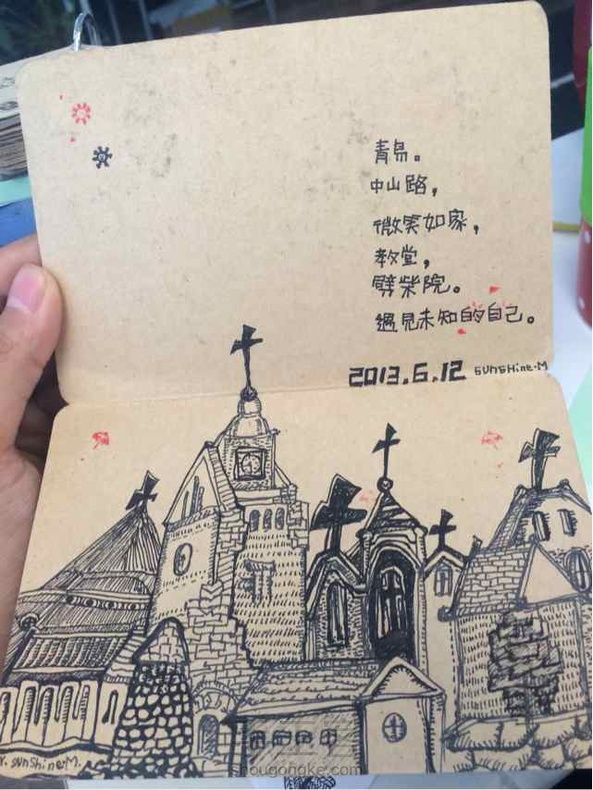 青岛。
中山路，
微笑如家，
教堂，
劈柴院。
遇見未知的自己。
2013.6.12 sunsHine·M
Y.sunshine.M.
hougongke.com